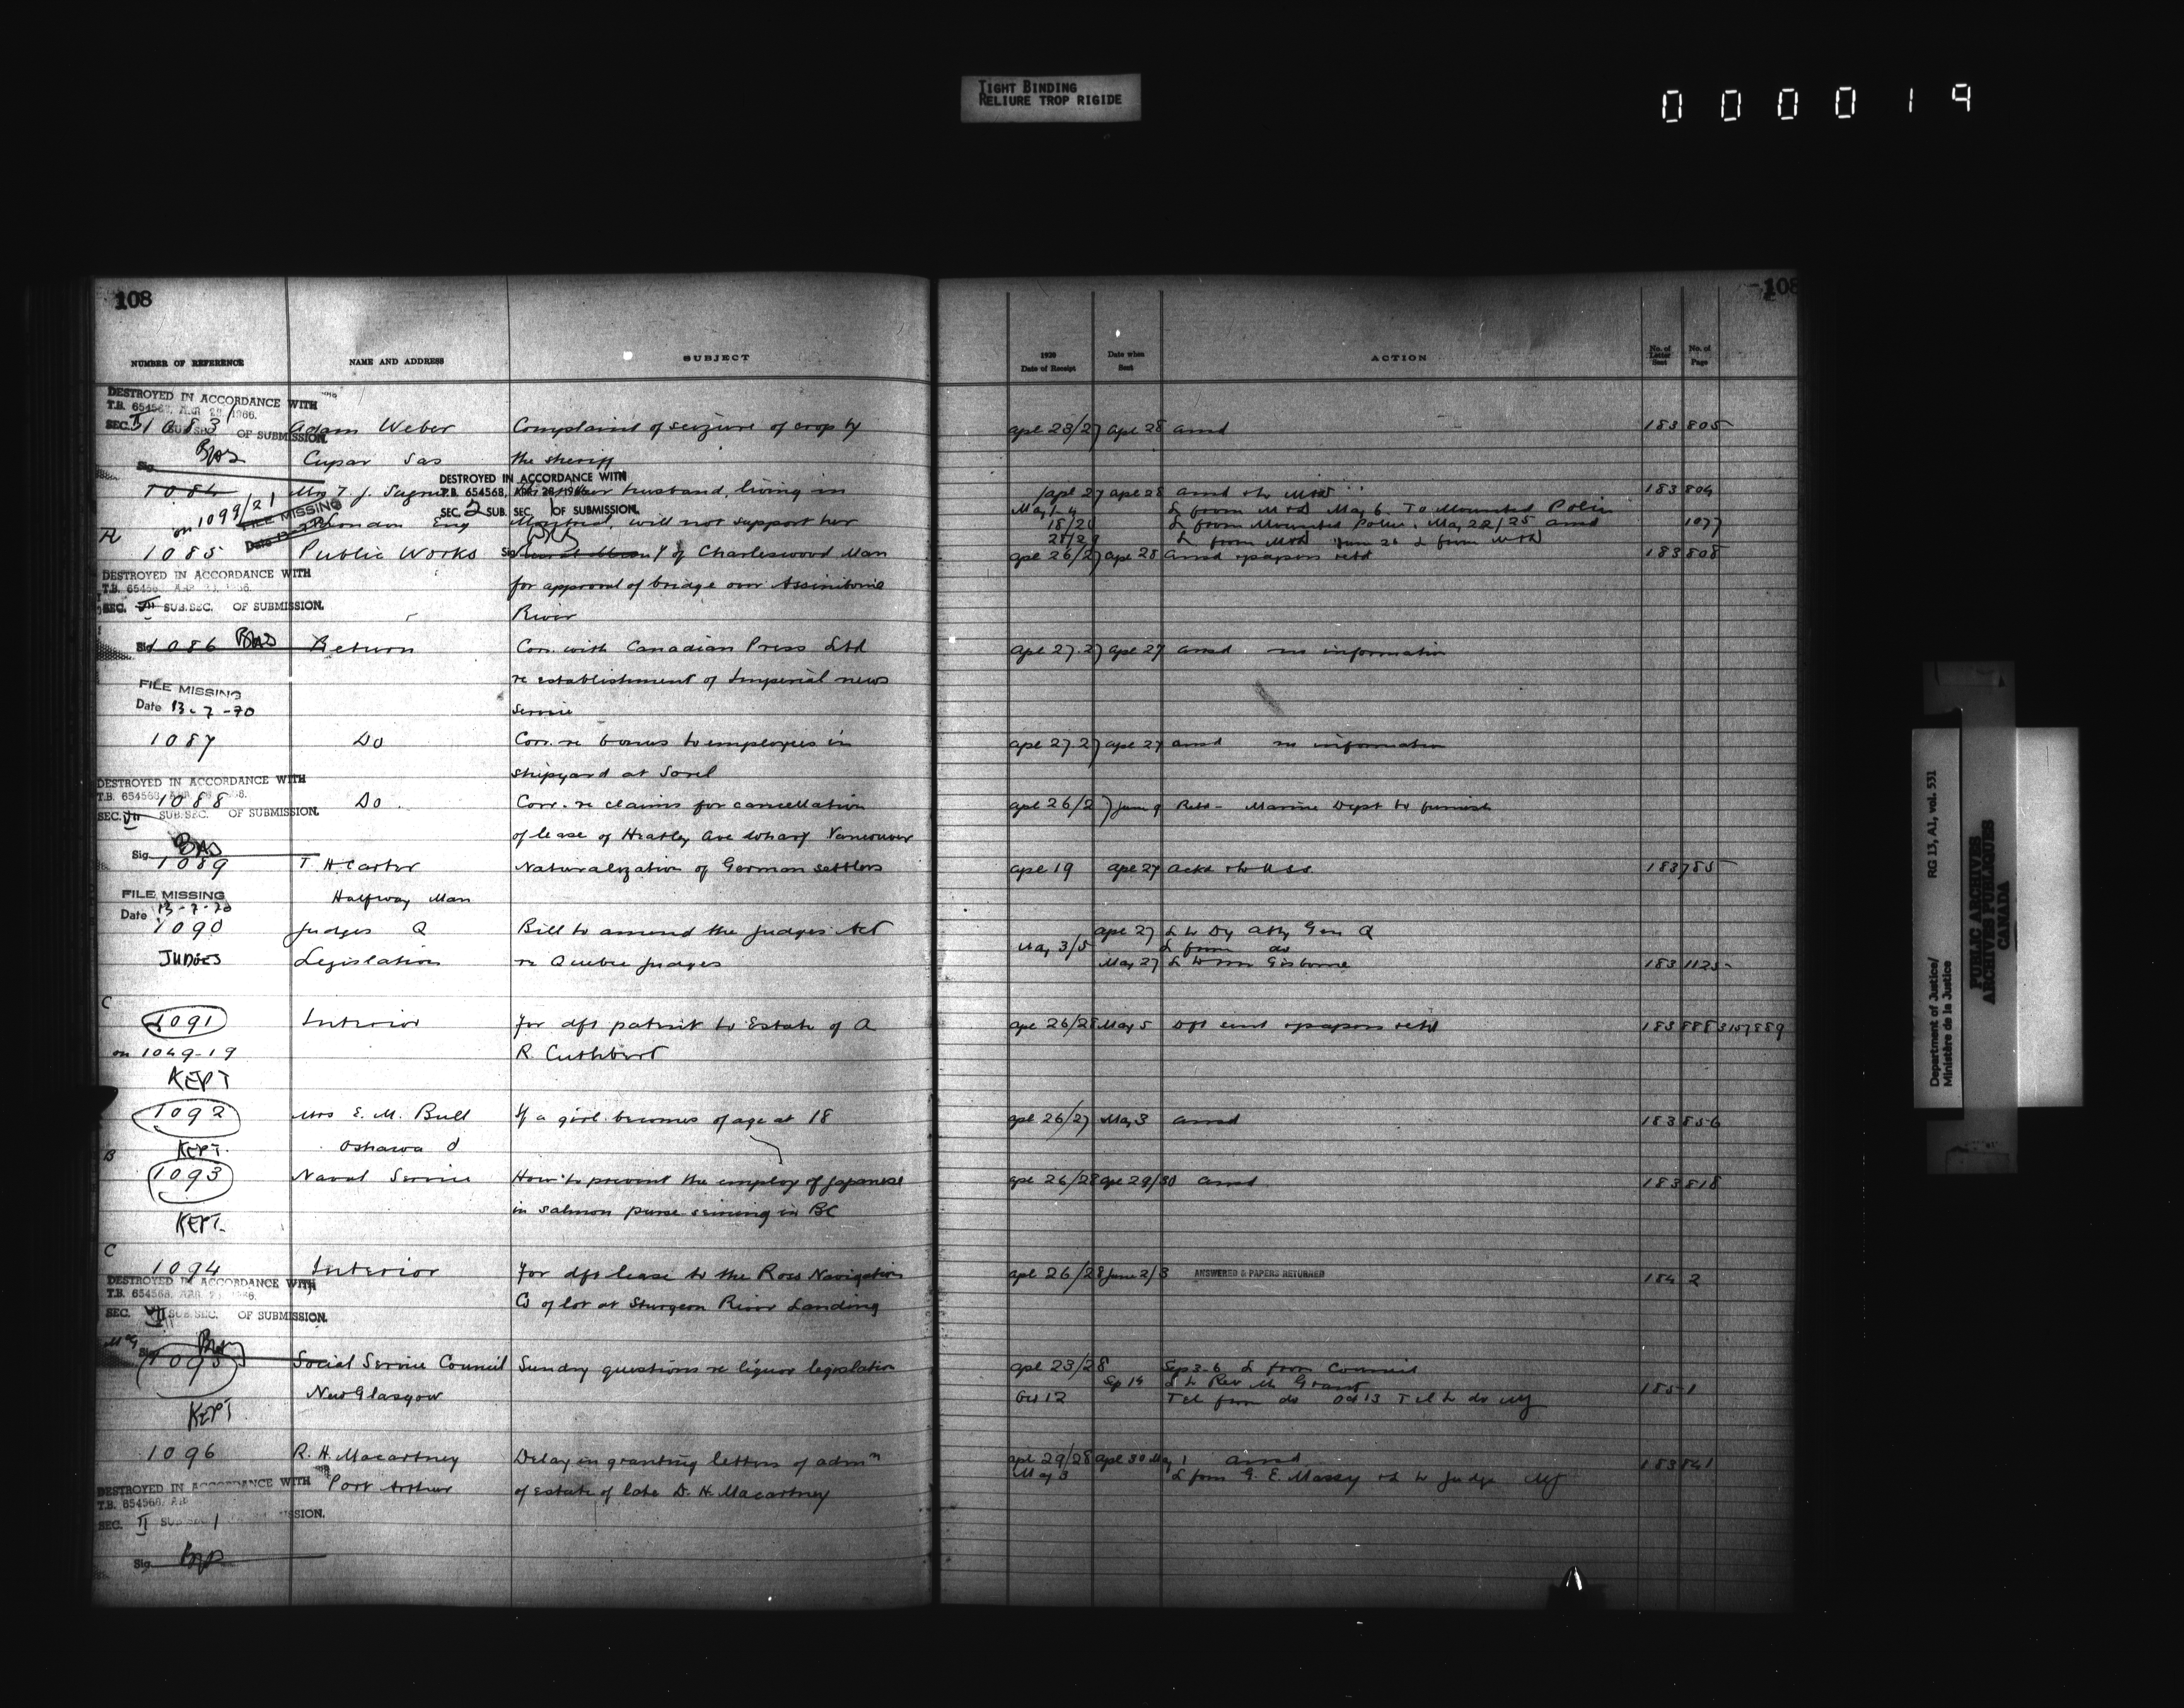 TIGHT BINDING
RELIURE TROP RIGIDE
000019
108
NUMBER OF REFERENCE NAME AND ADDRESS SUBJECT
DESTROYED IN ACCORDANCE WITH
T.B. 654568, APR 28 1966.
SEC. II SUB. SEC. 1 OF SUBMISSION.
1083 Adam Weber Complaint of seizure of crop by
Sig. Cupar Sas the sheriff
DESTROYED IN ACCORDANCE WITH
T.B. 654568, APR 28 1966.
SEC. 2 SUB. SEC. 1 OF SUBMISSION.
1084 Mrs T. J. husband, living in
on 1099/21 London Eng Montreal, will not support her
FILE MISSING
Date
1085 Public Works of Charleswood Man
DESTROYED IN ACCORDANCE WITH
T.B. 654568
SEC. VII SUB. SEC. OF SUBMISSION.
for approval of bridge over Assiniboine
River
Sig. 1086 Return Corr. with Canadian Press Ltd
re establishment of Imperial news
service
FILE MISSING
Date 13-7-70
1087 Do Corr. re bonus to employees in
shipyard at Sorel
DESTROYED IN ACCORDANCE WITH
T.B. 654568
SEC. VII SUB. SEC. OF SUBMISSION.
1088 Do. Corr. re claims for cancellation
of lease of Heatley Ave wharf Vancouver
Sig.
1089 T. H. Carter Naturalization of German settlers
FILE MISSING Halfway Man
Date 13-7-70
1090 Judges Q Bill to amend the Judges Act
JUDGES Legislation re Quebec Judges
C
1091 Interior For dft patent to Estate of A
on 1049-19 R. Cuthbert
KEPT
1092 Mrs E. M. Bull If a girl becomes of age at 18
KEPT. Oshawa O
B
1093 Naval Service How to prevent the employ of Japanese
in salmon purse seining in BC
KEPT.
C
1094 Interior For dft lease to the Ross Navigation
Co of lot at Sturgeon River Landing
DESTROYED IN ACCORDANCE WITH
T.B. 654568
SEC. VII SUB. SEC. OF SUBMISSION.
Sig.
1095 Social Service Council Sundry questions re liquor legislation
New Glasgow
KEPT
1096 R. H. Macartney Delay in granting letters of admn
Port Arthur of estate of late D. H. Macartney
DESTROYED IN ACCORDANCE WITH
T.B. 654568
SEC. II SUB SEC 1
Sig.
108
1920 Date of Receipt Date when Sent ACTION No. of Letter Sent No. of Page
Apl 23/27 Apl 28 ansd 183 805
Apl 27 Apl 28 ansd 183 804
May 1-4 L from May 6. To Mounted Police
18/20 L from Mounted Police. May 22/25 ansd 1077
28/29 L from
Apl 26/27 Apl 28 ansd & papers retd 183 808
Apl 27.27 Apl 27 ansd no information
Apl 27.27 Apl 27 ansd no information
Apl 26/27 June 9 Retd - Marine Dept to furnish
Apl 19 Apl 27 ackd & to USS 183 785
Apl 27 L to Dy Atty Gen Q
May 3/5 L from do
May 27 L to Mr Gisborne 183 1125
Apl 26/28 May 5 Dft sent & papers retd 183 888
Apl 26/27 May 3 ansd 183 856
Apl 26/28 Apl 29/30 ansd 183 818
Apl 26/28 June 2/3 ANSWERED & PAPERS RETURNED 184 2
Apl 23/28 Sep 3-6 L from Council
Sep 14 L to Rev Mr Grant 185 1
Oct 12 Tel from do Oct 13 Tel to do
Apl 29/28 Apl 30 May 1 ansd 183 841
May 3 L from G. E. Massey & L to Judge
Department of Justice/
Ministère de la Justice
RG 13, A1, vol. 531
PUBLIC ARCHIVES
ARCHIVES PUBLIQUES
CANADA